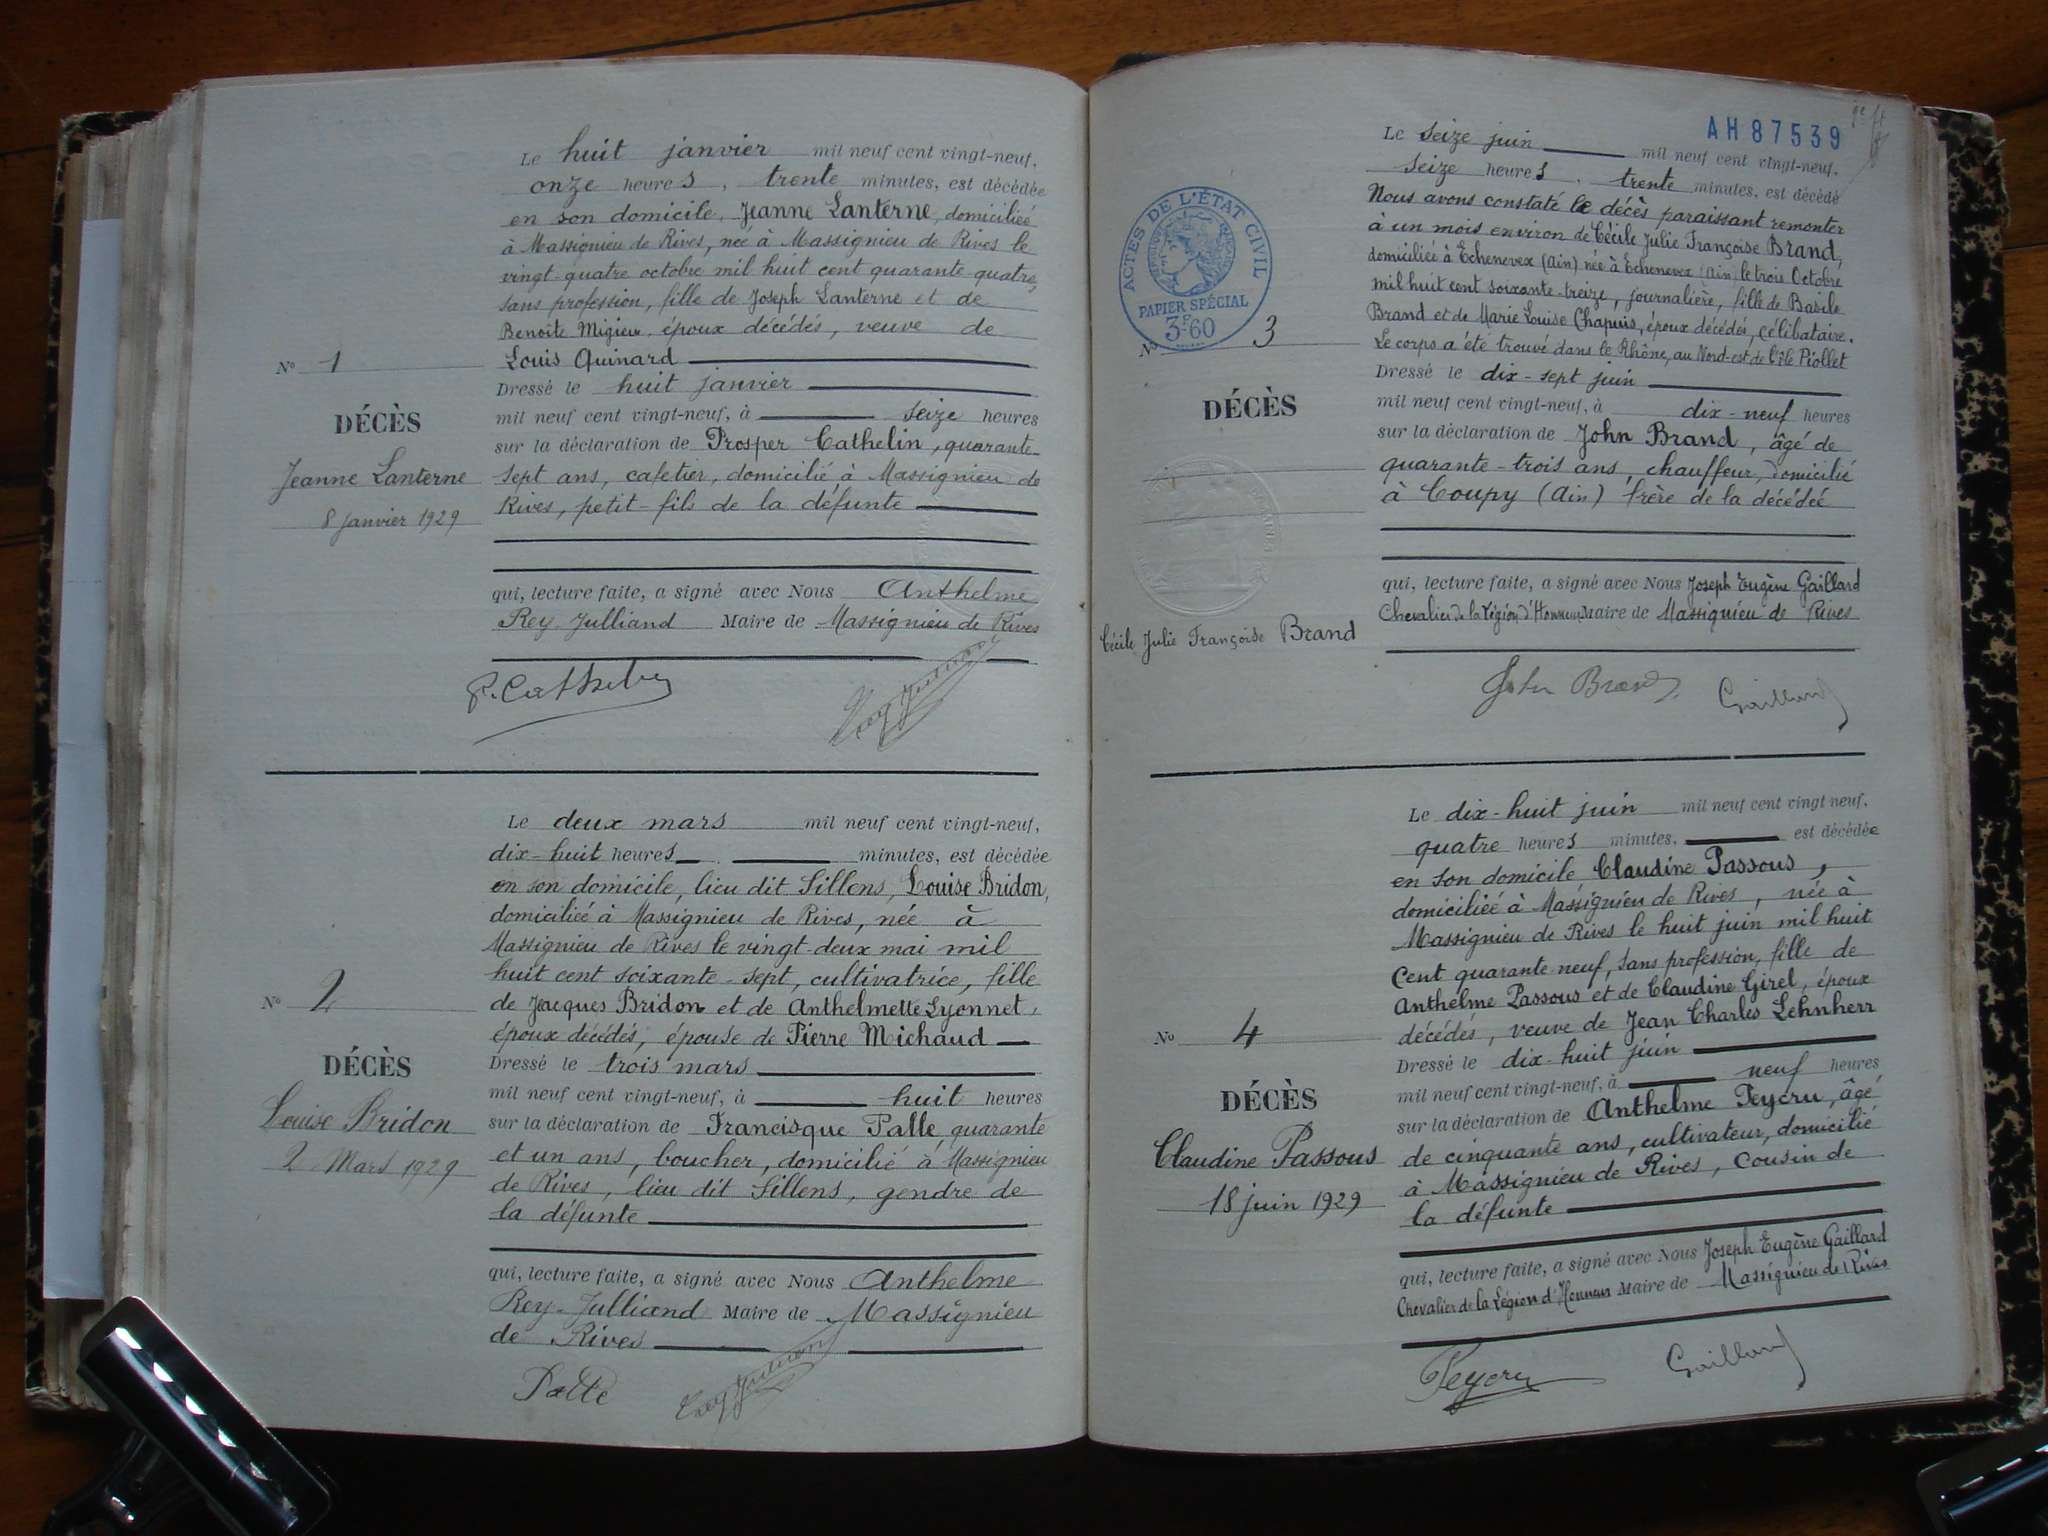 Le huit janvier mil neuf cent vingt-neuf,
onze heures, trente minutes, est décédée
en son domicile, Jeanne Lanterne, domiciliée
à Massignieu de Rives, née à Massignieu de Rives le
vingt-quatre octobre mil huit cent quarante-quatre,
sans profession, fille de Joseph Lanterne et de
Benoîte Migieu, époux décédés, veuve de
Louis Quinard
Nº 1
Dressé le huit janvier
mil neuf cent vingt-neuf, à seize heures
DÉCÈS
sur la déclaration de Prosper Cathelin, quarante-
Jeanne Lanterne
sept ans, cafetier, domicilié à Massignieu de
8 janvier 1929
Rives, petit-fils de la défunte
qui, lecture faite, a signé avec Nous Anthelme
Rey-Julliand Maire de Massignieu de Rives
P. Cathelin
Rey Julliand
Le deux mars mil neuf cent vingt-neuf,
dix-huit heures, minutes, est décédée
en son domicile, lieu dit Sillens, Louise Bridon,
domiciliée à Massignieu de Rives, née à
Massignieu de Rives le vingt-deux mai mil
huit cent soixante-sept, cultivatrice, fille
Nº 2
de Jacques Bridon et de Anthelmette Lyonnet,
époux décédés, épouse de Pierre Michaud
DÉCÈS
Dressé le trois mars
mil neuf cent vingt-neuf, à huit heures
Louise Bridon
sur la déclaration de Francisque Palle quarante
2 Mars 1929
et un ans, boucher, domicilié à Massignieu
de Rives, lieu dit Sillens, gendre de
la défunte
qui, lecture faite, a signé avec Nous Anthelme
Rey-Julliand Maire de Massignieu
de Rives
Palle
Rey Julliand
AH 87539
Le seize juin mil neuf cent vingt-neuf,
seize heures, trente minutes, est décédé
Nous avons constaté le décès paraissant remonter
à un mois environ de Cécile Julie Françoise Brand,
domiciliée à Echenevex (Ain) née à Echenevex (Ain) le trois Octobre
mil huit cent soixante-treize, journalière, fille de Basile
Brand et de Marie Louise Chapuis, époux décédés, célibataire.
Le corps a été trouvé dans le Rhône, au Nord-est de l'île Piollet
ACTES DE L'ÉTAT CIVIL
PAPIER SPÉCIAL
3F60
Nº 3
Dressé le dix-sept juin
DÉCÈS
mil neuf cent vingt-neuf, à dix-neuf heures
sur la déclaration de John Brand, âgé de
quarante-trois ans, chauffeur, domicilié
à Coupy (Ain) frère de la décédée
qui, lecture faite, a signé avec Nous Joseph Eugène Gaillard
Chevalier de la Légion d'Honneur Maire de Massignieu de Rives
Cécile Julie Françoise Brand
John Brand
Gaillard
Le dix-huit juin mil neuf cent vingt-neuf,
quatre heures minutes, est décédée
en son domicile Claudine Passous,
domiciliée à Massignieu de Rives, née à
Massignieu de Rives le huit juin mil huit
cent quarante-neuf, sans profession, fille de
Anthelme Passous et de Claudine Girel, époux
Nº 4
décédés, veuve de Jean Charles Lehnherr
Dressé le dix-huit juin
DÉCÈS
mil neuf cent vingt-neuf, à neuf heures
sur la déclaration de Anthelme Peycru, âgé
Claudine Passous
de cinquante ans, cultivateur, domicilié
18 juin 1929
à Massignieu de Rives, cousin de
la défunte
qui, lecture faite, a signé avec Nous Joseph Eugène Gaillard
Chevalier de la Légion d'Honneur Maire de Massignieu de Rives
Peycru
Gaillard